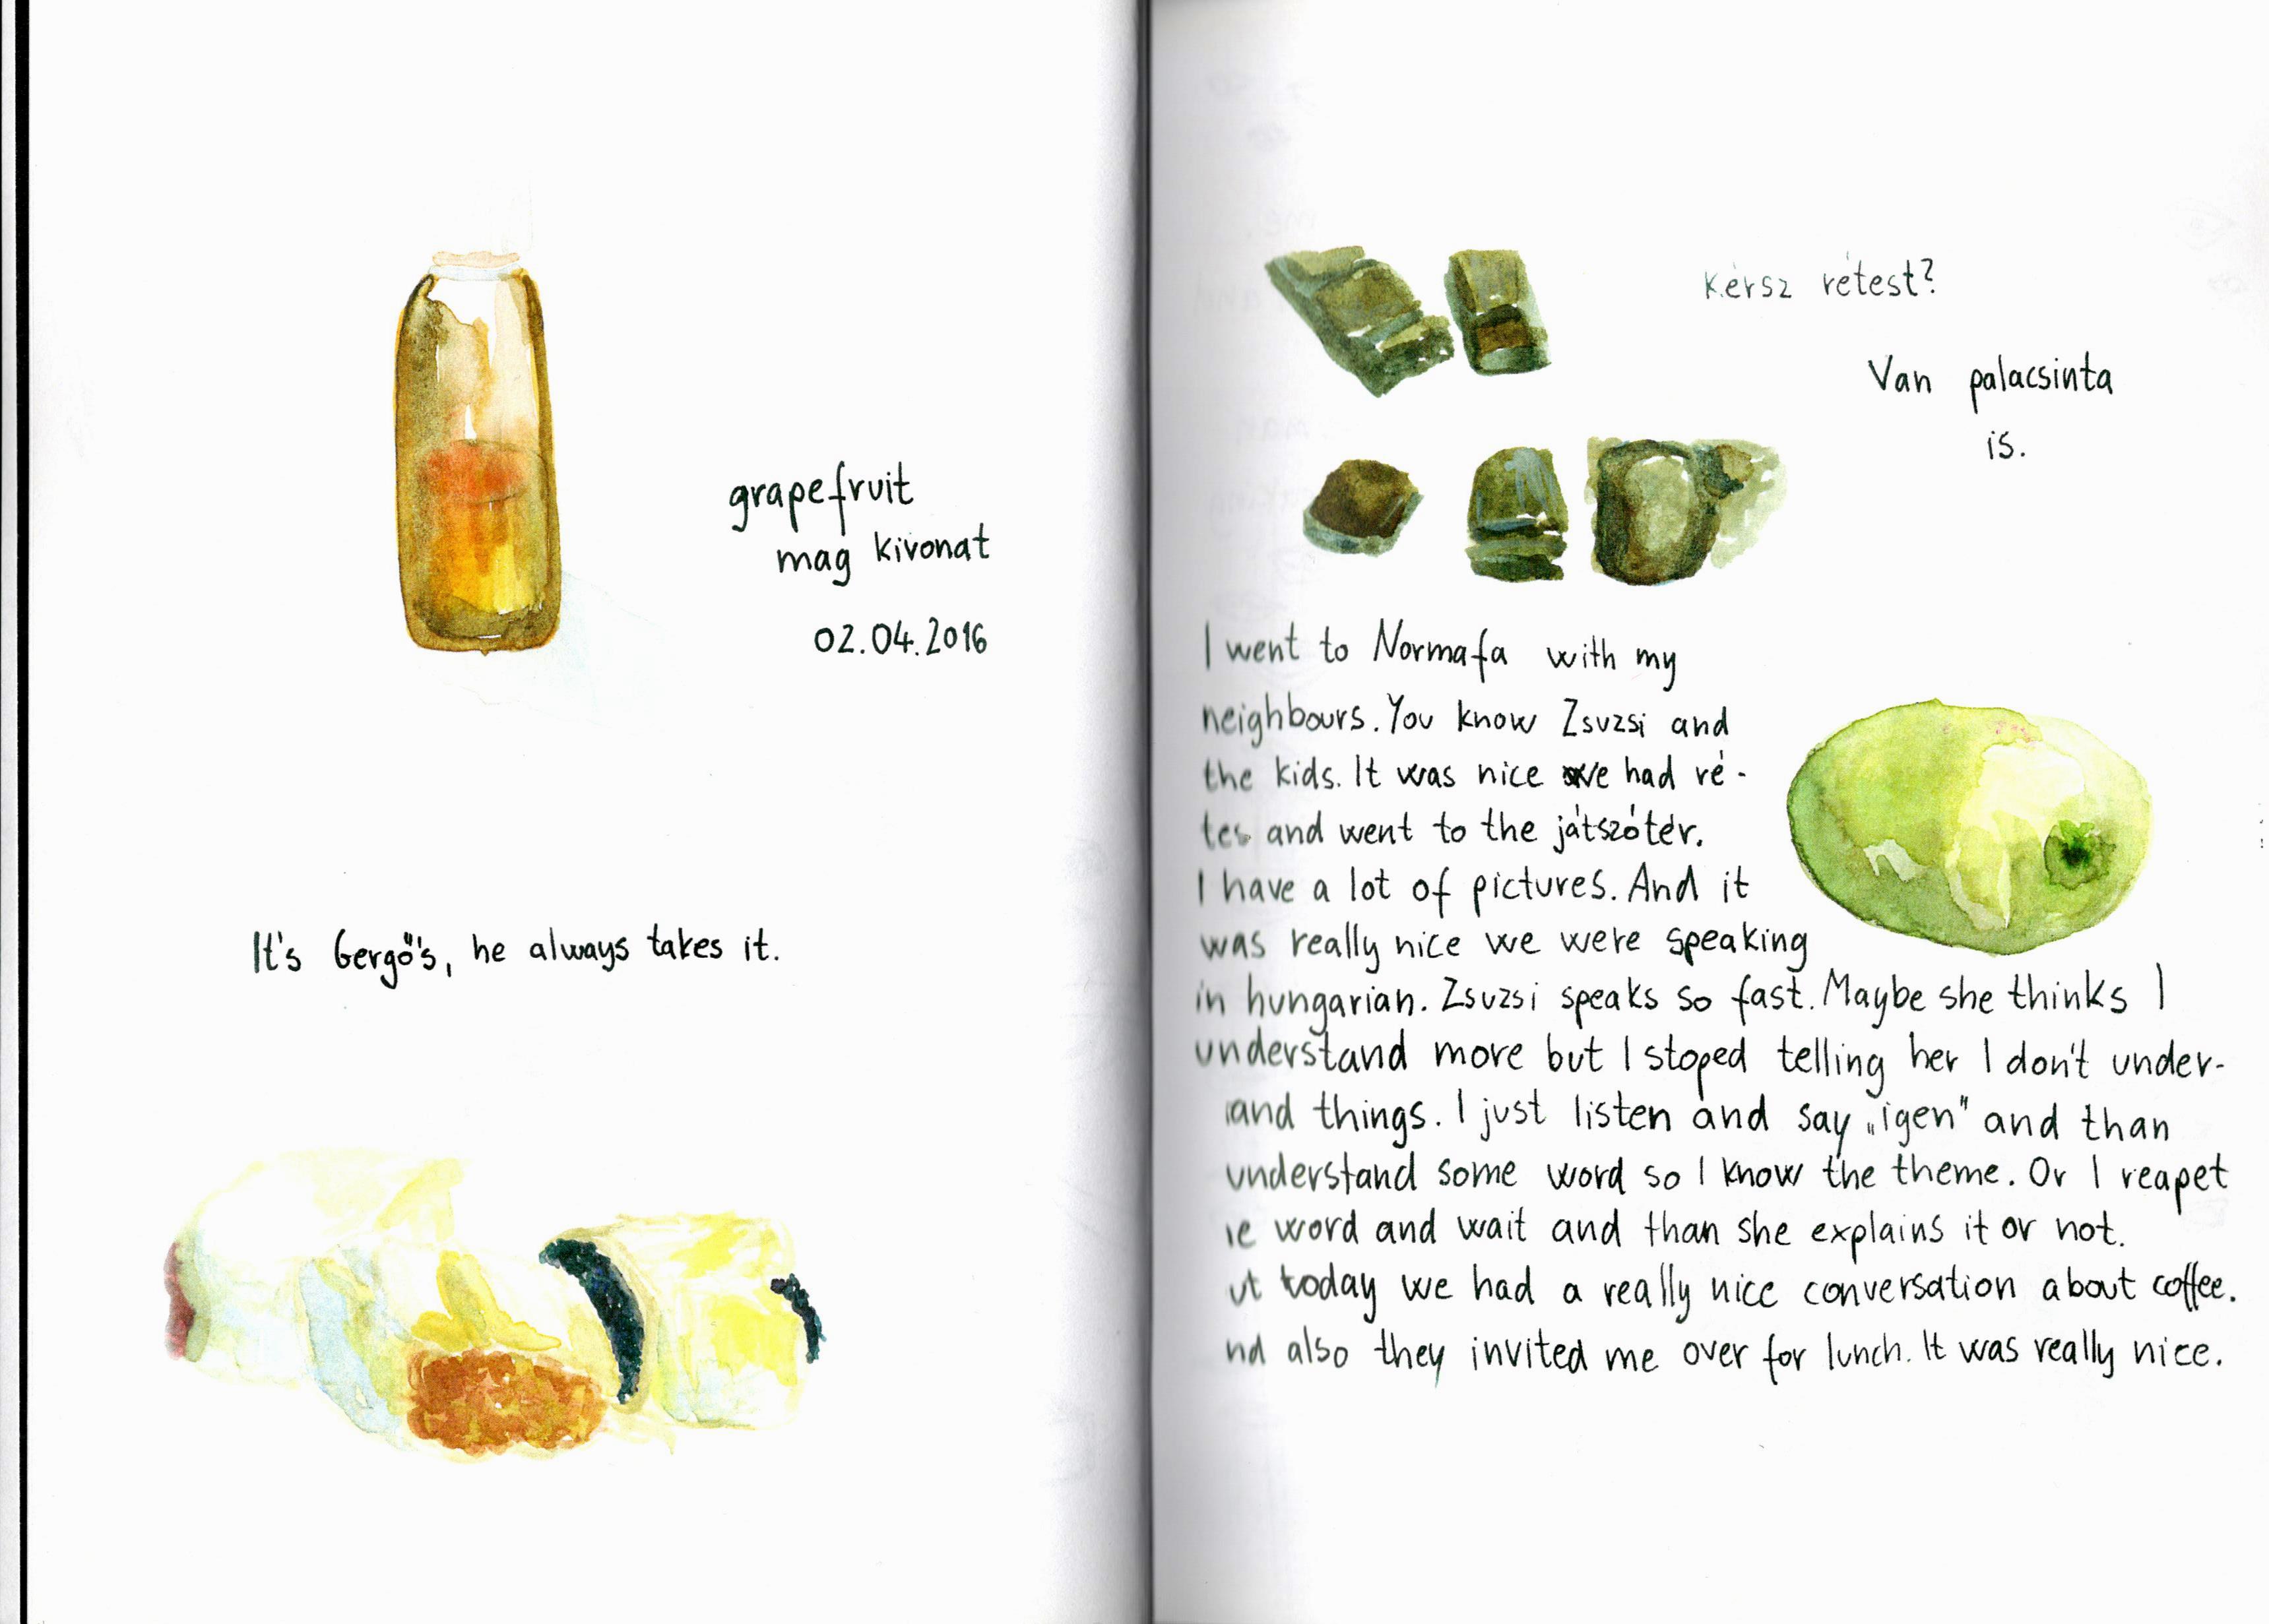 grapefruit
mag kivonat
02.04.2016
It's Gergő's, he always takes it.
Kérsz rétest?
Van palacsinta
is.
I went to Normafa with my
neighbours. You know Zsuzsi and
the kids. It was nice we had ré-
tes and went to the játszótér.
I have a lot of pictures. And it
was really nice we were speaking
in hungarian. Zsuzsi speaks so fast. Maybe she thinks I
understand more but I stoped telling her I don't under-
and things. I just listen and say „igen" and than
understand some word so I know the theme. Or I reapet
word and wait and than she explains it or not.
today we had a really nice conversation about coffee.
also they invited me over for lunch. It was really nice.